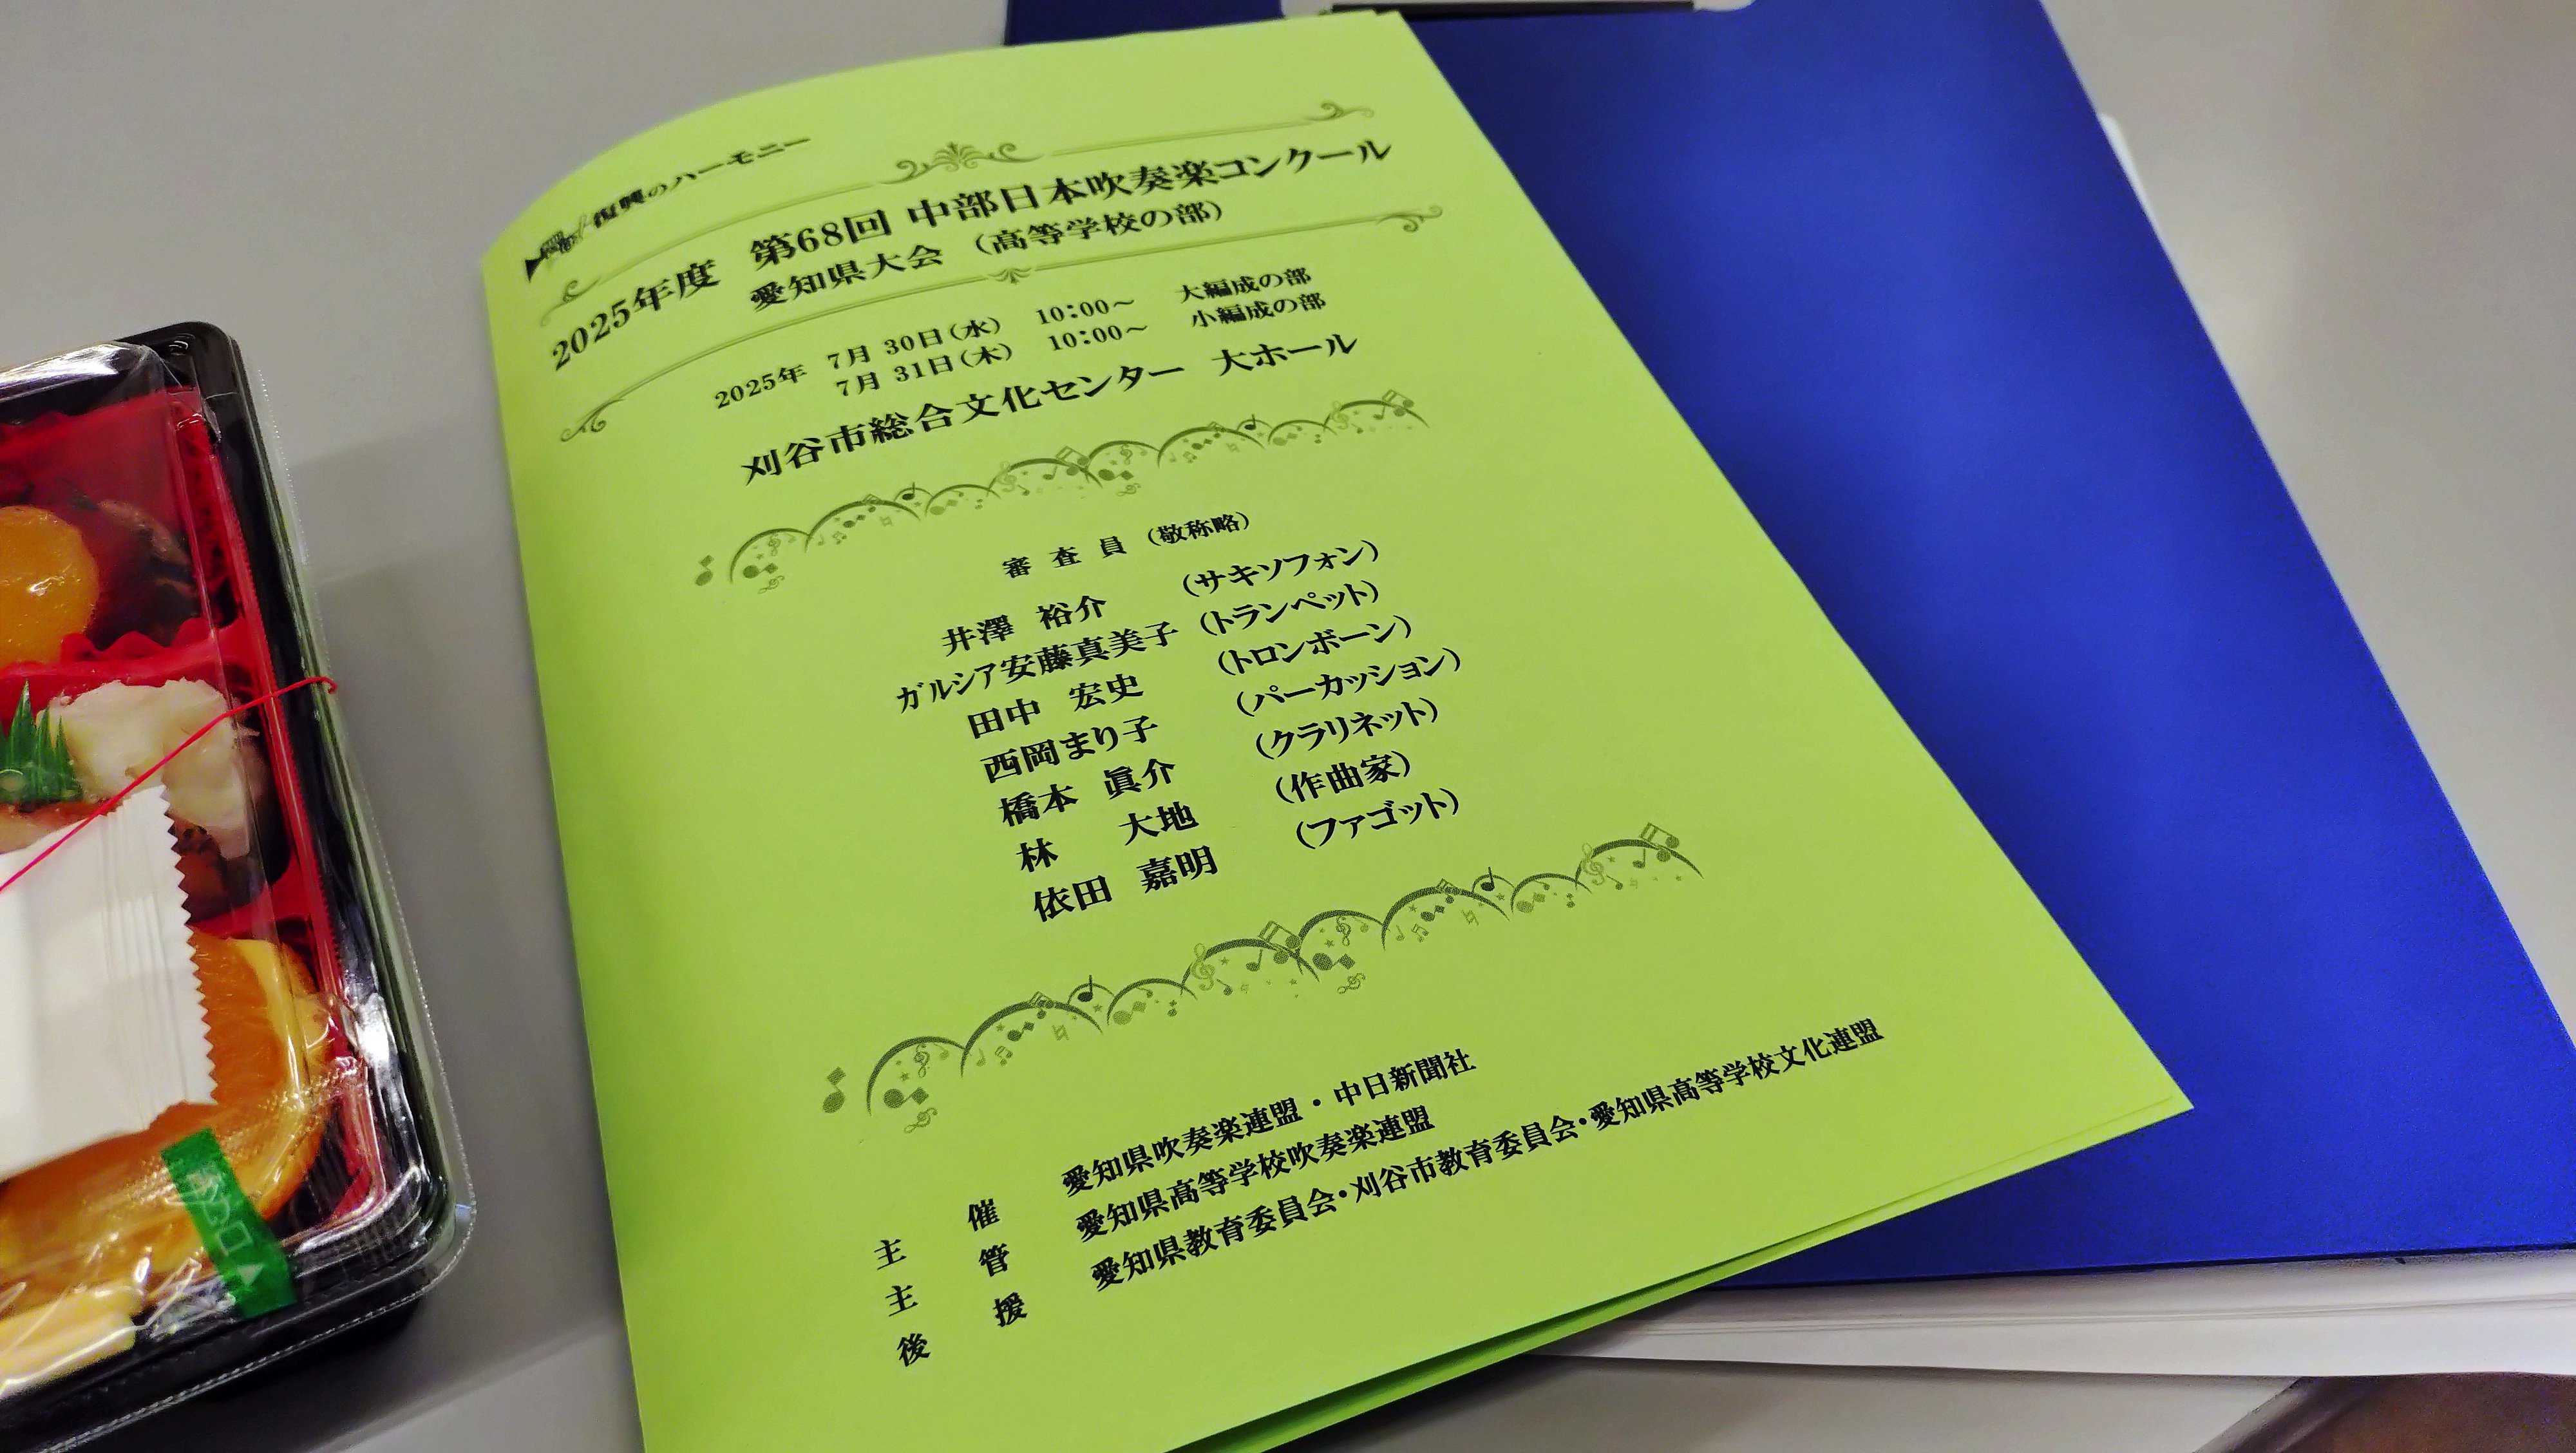 復興のハーモニー
2025年度 第68回 中部日本吹奏楽コンクール
愛知県大会 (高等学校の部)
2025年 7月 30日(水) 10:00～ 大編成の部
7月 31日(木) 10:00～ 小編成の部
刈谷市総合文化センター 大ホール
審査員 (敬称略)
井澤 裕介 (サキソフォン)
ガルシア安藤真美子 (トランペット)
田中 宏史 (トロンボーン)
西岡まり子 (パーカッション)
橋本 眞介 (クラリネット)
林 大地 (作曲家)
依田 嘉明 (ファゴット)
主催 愛知県吹奏楽連盟・中日新聞社
主管 愛知県高等学校吹奏楽連盟
後援 愛知県教育委員会・刈谷市教育委員会・愛知県高等学校文化連盟